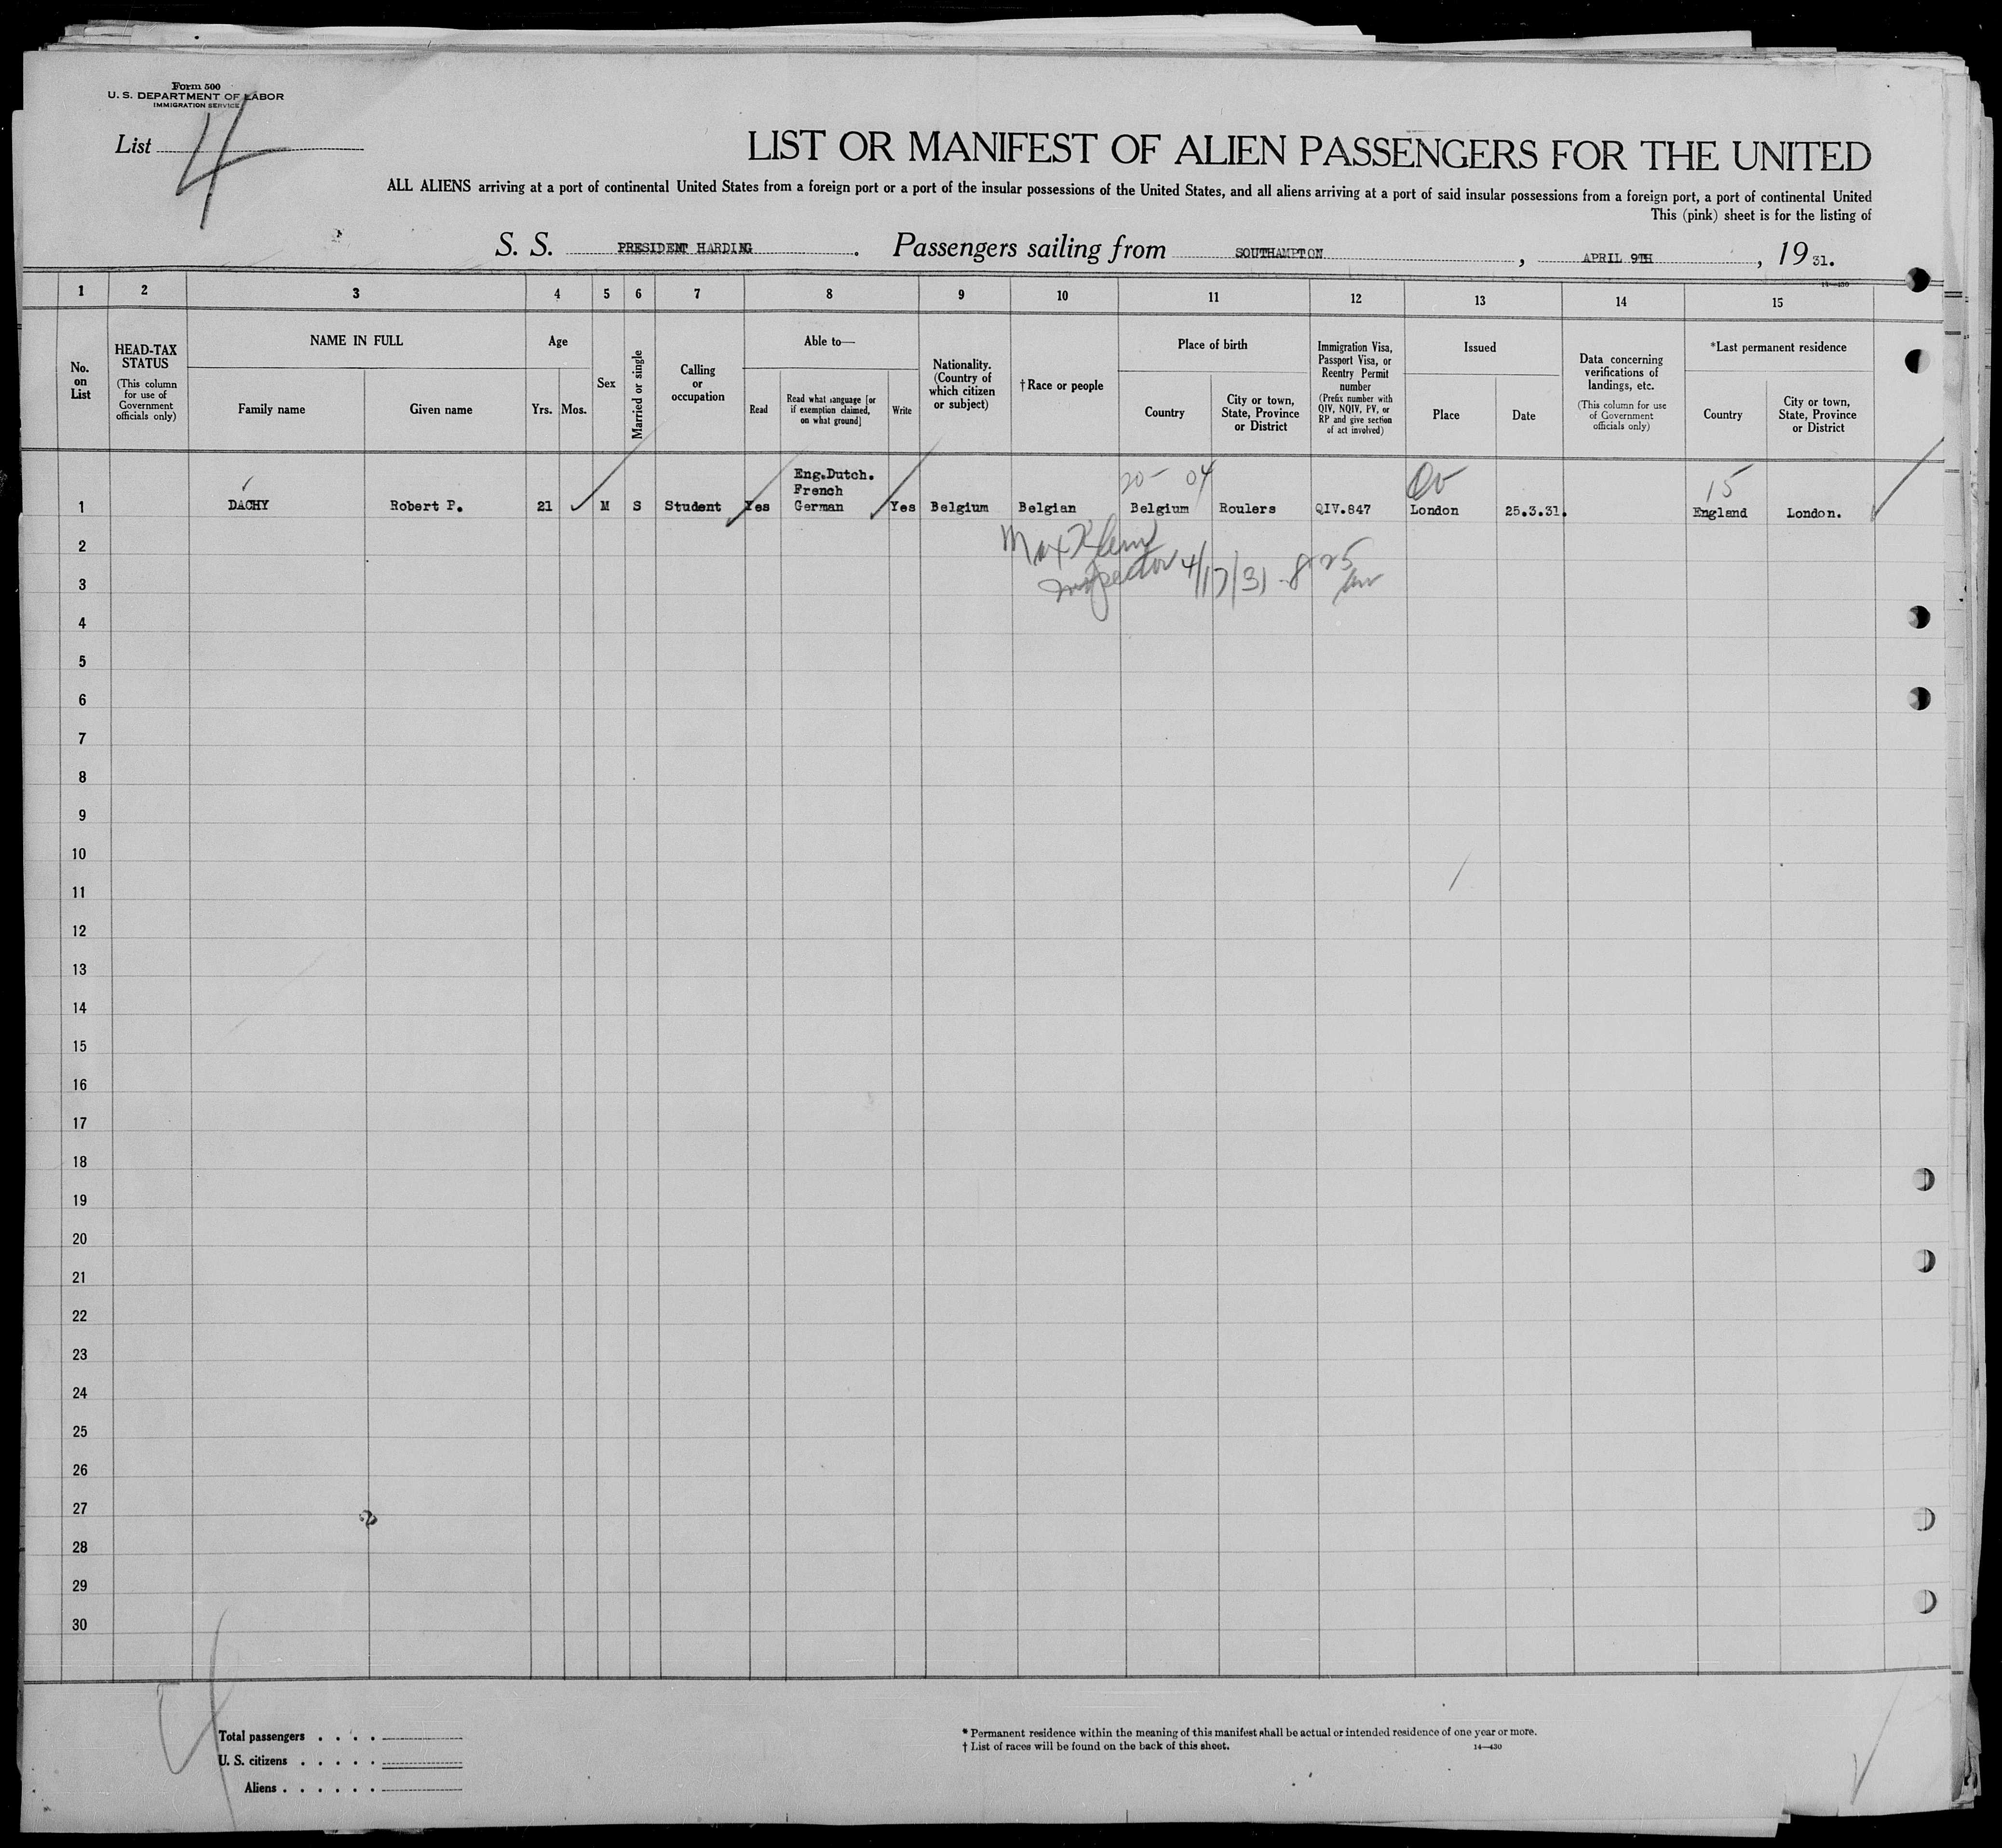 Form 500
U. S. DEPARTMENT OF LABOR
IMMIGRATION SERVICE
List 4
LIST OR MANIFEST OF ALIEN PASSENGERS FOR THE UNITED
ALL ALIENS arriving at a port of continental United States from a foreign port or a port of the insular possessions of the United States, and all aliens arriving at a port of said insular possessions from a foreign port, a port of continental United
This (pink) sheet is for the listing of
S. S. PRESIDENT HARDING. Passengers sailing from SOUTHAMPTON, APRIL 9TH, 19 31.
14—430
1 2 3 4 5 6 7 8 9 10 11 12 13 14 15
No. on List
HEAD-TAX STATUS
(This column for use of Government officials only)
NAME IN FULL
Family name
Given name
Age
Yrs. Mos.
Sex
Married or single
Calling or occupation
Able to—
Read
Read what language [or if exemption claimed, on what ground]
Write
Nationality. (Country of which citizen or subject)
† Race or people
Place of birth
Country
City or town, State, Province or District
Immigration Visa, Passport Visa, or Reentry Permit number
(Prefix number with QIV, NQIV, PV, or RP and give section of act involved)
Issued
Place
Date
Data concerning verifications of landings, etc.
(This column for use of Government officials only)
*Last permanent residence
Country
City or town, State, Province or District
20- 04
15
1 DACHY Robert P. 21 M S Student Yes Eng.Dutch. French German Yes Belgium Belgian Belgium Roulers QIV.847 London 25.3.31. England London.
Max Klein
Inspector 4/17/31 - 8 25 am
2
3
4
5
6
7
8
9
10
11
12
13
14
15
16
17
18
19
20
21
22
23
24
25
26
27
28
29
30
Total passengers . . . .
U. S. citizens . . . . .
Aliens . . . . . .
* Permanent residence within the meaning of this manifest shall be actual or intended residence of one year or more.
† List of races will be found on the back of this sheet.
14—430